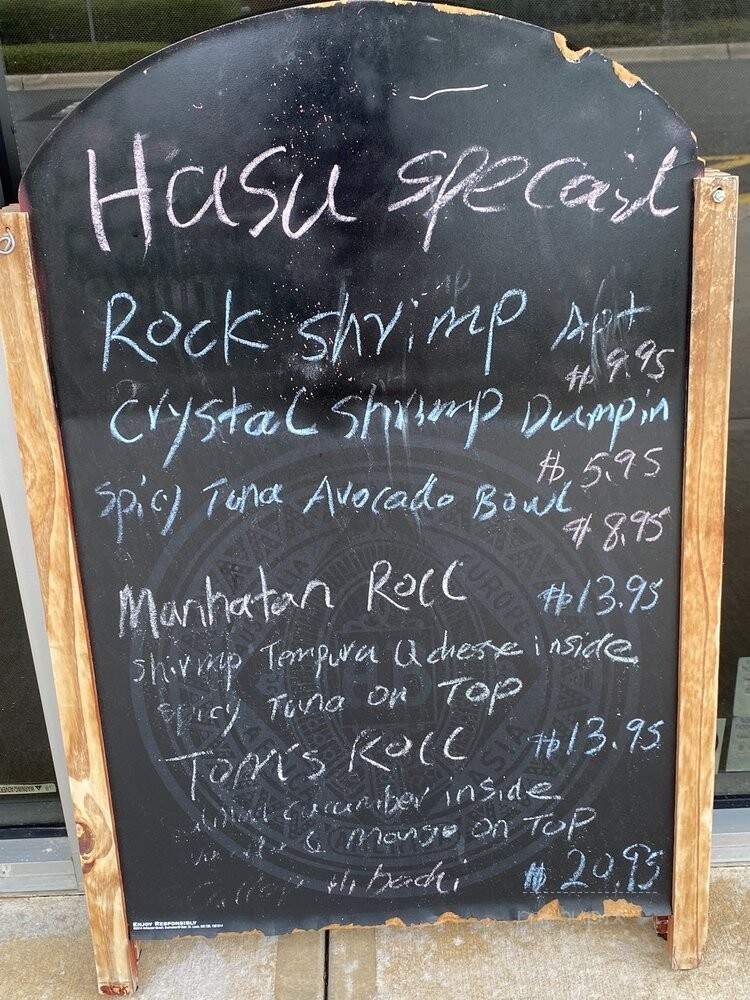 Hasu specail
Rock shrimp Apt
$9.95
Crystal shrimp Dumpin
$5.95
Spicy Tuna Avocado Bowl
$8.95
Manhatan Roll $13.95
shrimp Tempura Q cheese inside
spicy Tuna on Top
Tom's Roll $13.95
cucumber inside
mango on Top
Hibachi $20.95
ENJOY RESPONSIBLY